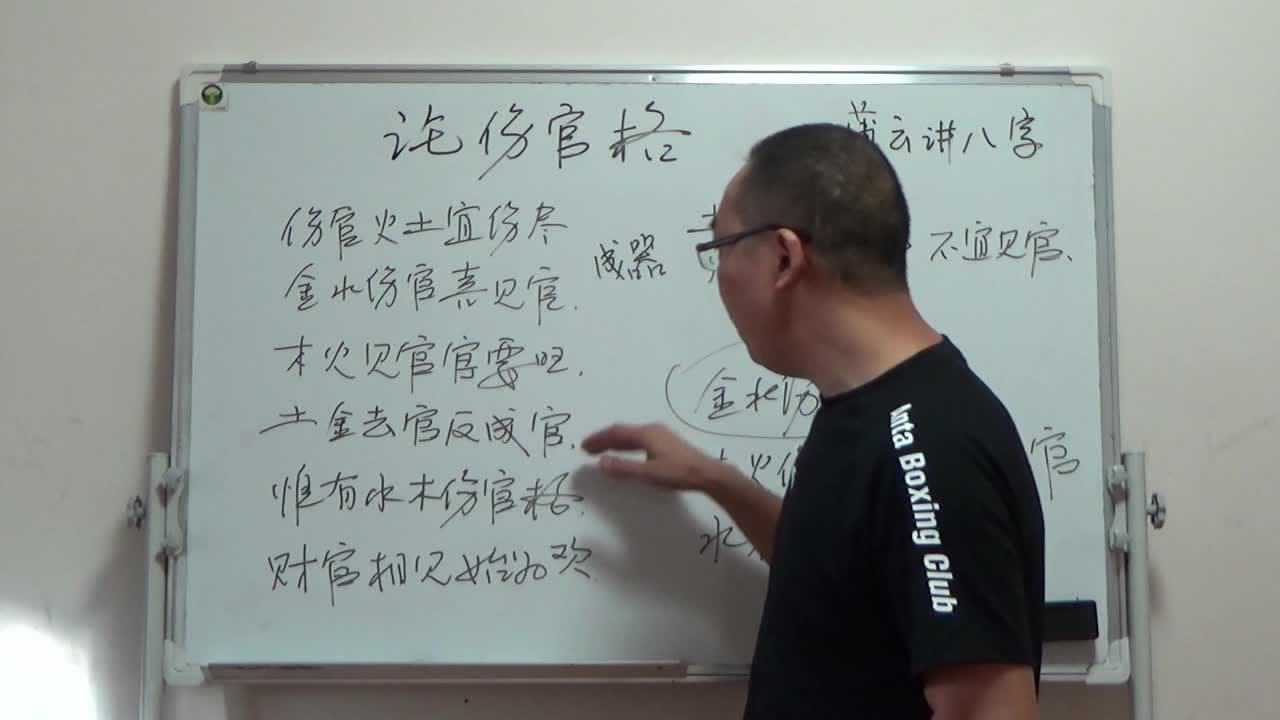 论伤官格
蒲云讲八字
伤官火土宜伤尽
金水伤官喜见官.
木火见官官要旺.
土金去官反成官.
惟有水木伤官格.
财官相见始为欢
成器
不宜见官、
金水伤
火伤
官
水
Inta Boxing Club